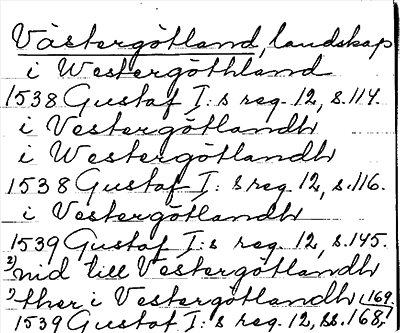 Västergötland, landskap
i Westergöthland
1538 Gustaf I:s reg. 12, s. 114.
i Vestergötlandh
i Westergötlandh
1538 Gustaf I:s reg. 12, s. 116.
i Vestergötlandh
1539 Gustaf I:s reg. 12, s. 145.
2) nid till Vestergötlandh
1) ther i Vestergötlandh 169
1539 Gustaf I:s reg. 12, ss. 168,